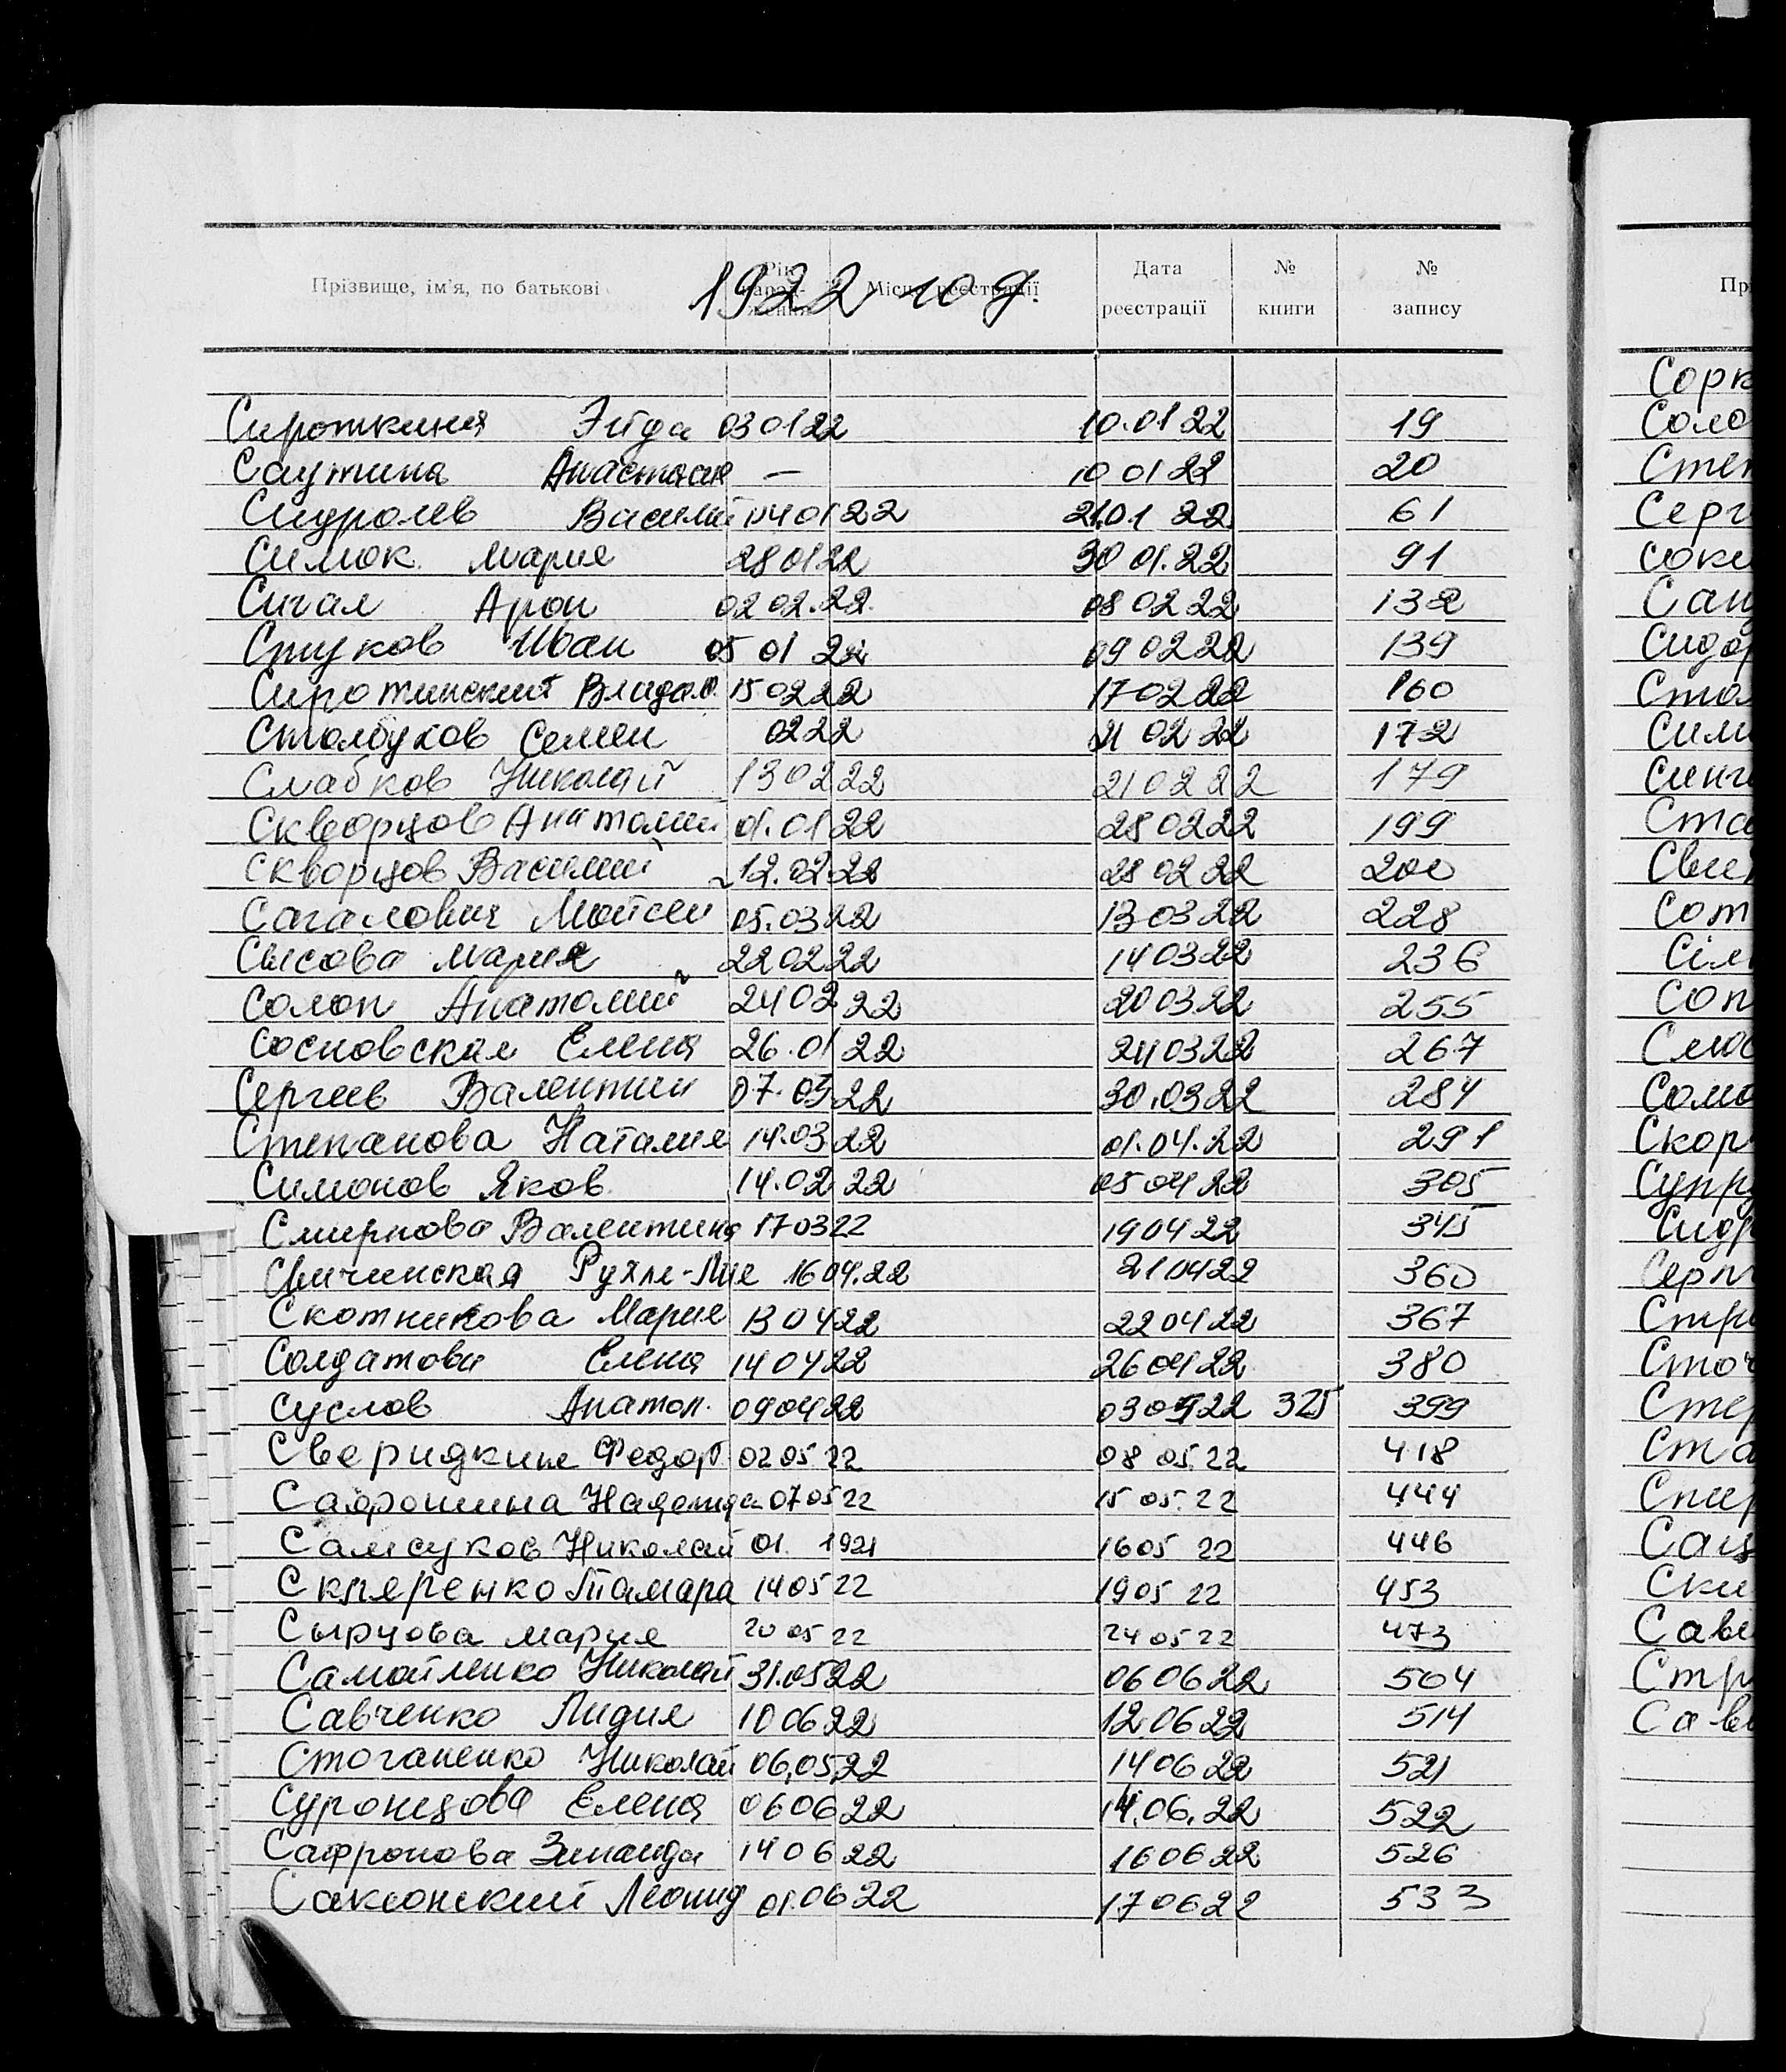 Прізвище, ім'я, по батькові Рік народження Місце реєстрації Дата реєстрації № книги № запису
1922 год.
Сироткина Эйда 03 01 22 10.01 22 19
Саутина Анастасия — 10 01 22 20
Сидролев Василий 04 01 22 21.01 22 61
Симок Мария 28 01 22 30 01.22 91
Сигал Арон 02 02.22 08 02 22 132
Стуков Иван 05 01 22 09 02 22 139
Сиротинский Владим. 15 02 22 17 02 22 160
Столбуков Семен 02 22 21 02 22 172
Слабков Николай 13 02 22 21 02 22 179
Скворцов Анатолий 01.01 22 28 02 22 199
Скворцов Василий 12.02.22 28 02 22 200
Сагалович Мойсей 05.03 22 13 03 22 228
Сысова Мария 22 02 22 14 03 22 236
Солоп Анатолий 24 02 22 20 03 22 255
Сосновская Елена 26.01 22 24 03 22 267
Сергеев Валентин 07.03 22 30.03 22 284
Степанова Наталия 14.03 22 01.04.22 291
Симонов Яков 14.02 22 05 04 22 305
Смирнова Валентина 17 03 22 19 04 22 345
Свичинская Рухля-Лие 16 04.22 21 04 22 360
Скотникова Мария 13 04 22 22 04 22 367
Солдатова Елена 14 04 22 26 04 22 380
Суслов Анатол. 09 04 22 03 05 22 325 399
Сверидкине Федор 02 05 22 08 05.22 418
Сафрошина Надежда 07 05 22 15 05.22 444
Самсуков Николай 01. 1921 16 05 22 446
Скляренко Тамара 14 05 22 19 05 22 453
Сырцова Мария 20 05 22 24 05 22 473
Самойленко Николай 31.05 22 06 06 22 504
Савченко Лидия 10 06 22 12.06 22 514
Стоганенко Николай 06.05.22 14 06 22 521
Суронцова Елена 06 06 22 14.06.22 522
Сафронова Зинаида 14 06 22 16 06 22 526
Саксонский Леонид 01.06 22 17 06 22 533
Пр
Сорк
Соло
Степ
Серг
Соки
Сидор
Стал
Сими
Синг
Ста
Сот
Сіл
Соп
Соло
Скор
Супру
Сидр
Серп
Стри
Сточ
Стер
Ста
Спир
Сац
Ски
Сави
Стр
Сав